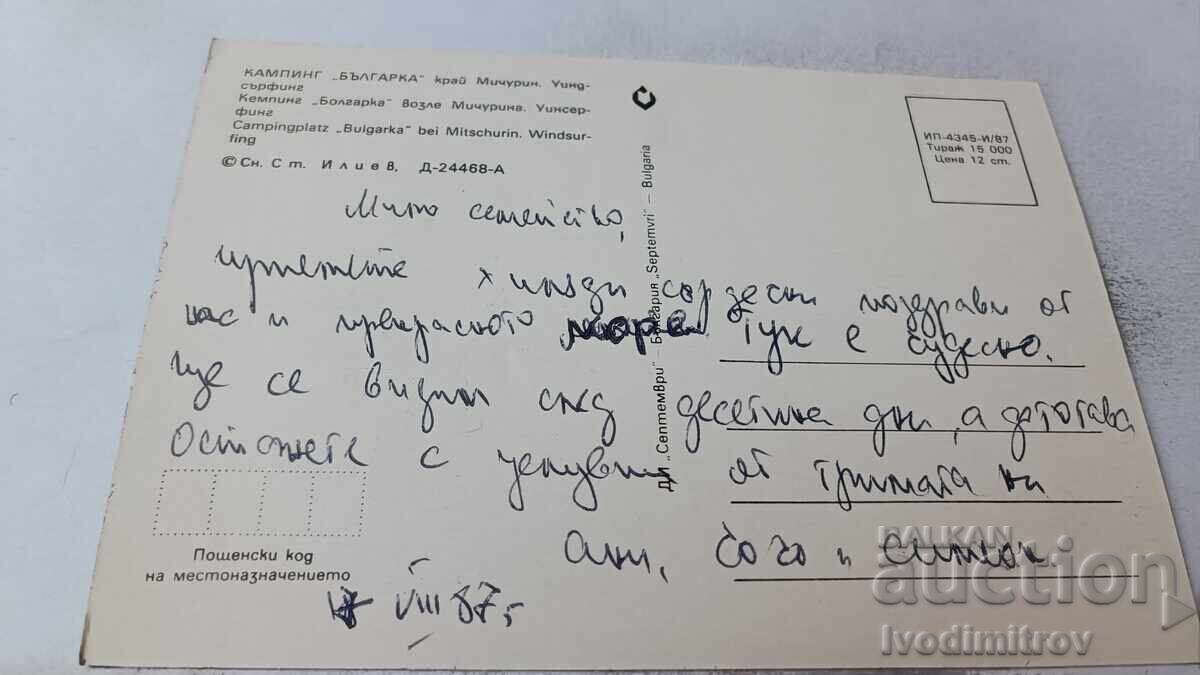 КАМПИНГ „БЪЛГАРКА" край Мичурин. Уинд-
сърфинг
Кемпинг „Болгарка" возле Мичурина. Уинсер-
финг
Campingplatz „Bulgarka" bei Mitschurin. Windsur-
fing
© Сн. Ст. Илиев, Д-24468-А
ИП-4345-И/87
Тираж 15 000
Цена 12 ст.
ДИ „Септември" — Болгария „Septemvri" — Bulgaria
Мило семейство,
приемете хиляди сърдечни поздрави от
нас и прекрасното море. Тук е чудесно.
Ще се видим след десетина дни, а дотогава
Останете с целувки от тримата ни
Ани, и
Пощенски код
на местоназначението
VIII 87 г.
BALKAN
auction
Ivodimitrov